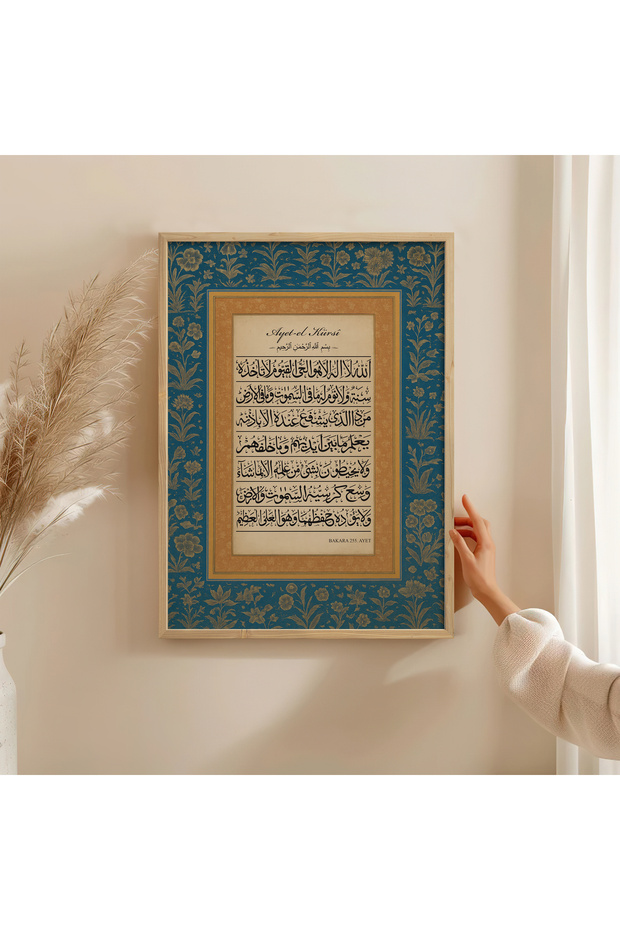 Ayet-el Kürsî
بِسْمِ اللّٰهِ الرَّحْمٰنِ الرَّحِيمِ
اَللّٰهُ لَا اِلٰهَ اِلَّا هُوَ الْحَىُّ الْقَيُّومُ لَا تَأْخُذُهُ
سِنَةٌ وَلَا نَوْمٌ لَهُ مَا فِى السَّمٰوَاتِ وَمَا فِى الْاَرْضِ
مَنْ ذَا الَّذِى يَشْفَعُ عِنْدَهُ اِلَّا بِاِذْنِهِ
يَعْلَمُ مَا بَيْنَ اَيْدِيهِمْ وَمَا خَلْفَهُمْ
وَلَا يُحِيطُونَ بِشَىْءٍ مِنْ عِلْمِهِ اِلَّا بِمَا شَاءَ
وَسِعَ كُرْسِيُّهُ السَّمٰوَاتِ وَالْاَرْضَ
وَلَا يَؤُدُهُ حِفْظُهُمَا وَهُوَ الْعَلِىُّ الْعَظِيمُ
BAKARA 255. AYET